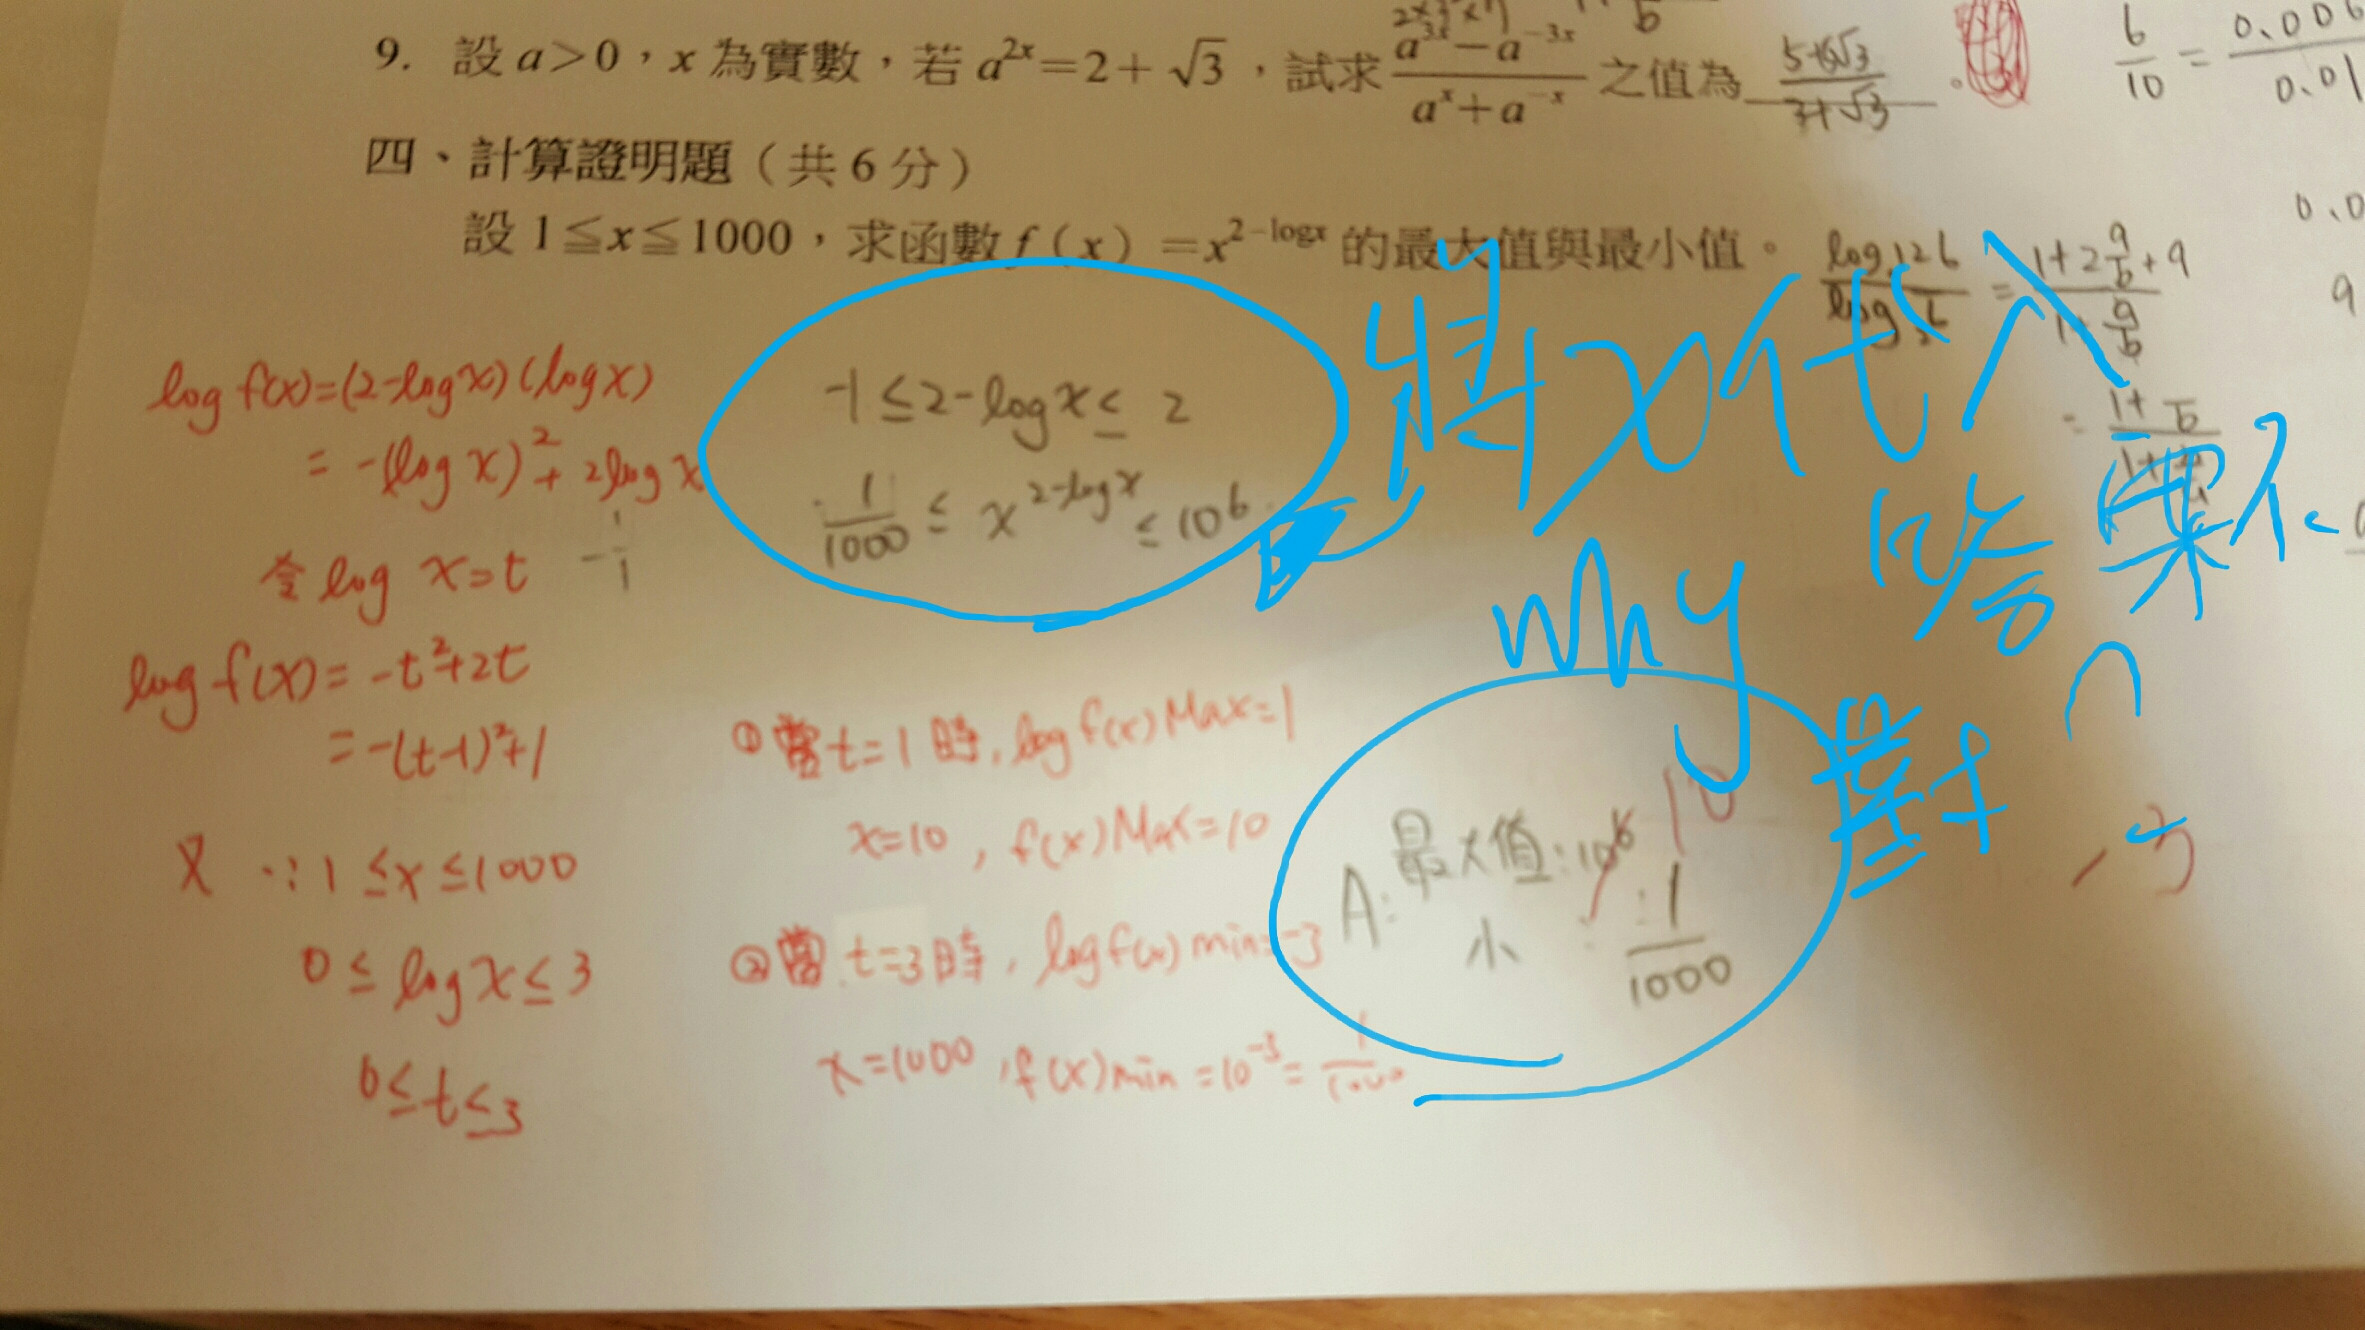 9. 設 a>0，x 為實數，若 a^{2x}=2+√3，試求 \frac{a^{3x}-a^{-3x}}{a^x+a^{-x}} 之值為 \frac{5+6√3}{3+√3}。
\frac{6}{10} = \frac{0.006}{0.01}
四、計算證明題（共 6 分）
設 1≦x≦1000，求函數 f(x)=x^{2-logx} 的最大值與最小值。
= \frac{1+2\frac{a}{b}+a}{1+\frac{a}{b}}
log f(x)=(2-log x)(log x)
= -(log x)^2 + 2log x
令 log x=t
log f(x)= -t^2+2t
= -(t-1)^2+1
∵ 1≤x≤1000
0≤ log x ≤3
0≤t≤3
-1≤2-log x≤ 2
\frac{1}{1000} ≤ x^{2-log x} ≤ 10^6
將x代入
why 答案不
對
① 當 t=1 時, log f(x) Max=1
x=10, f(x) Max=10
② 當 t=3 時, log f(x) min=-3
x=1000, f(x) min =10^{-3}= \frac{1}{1000}
A: 最大值: 10^6 10
小: \frac{1}{1000}
-3